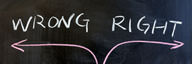 WRONG RIGHT